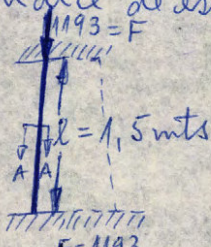 1193 = F
l = 1,5 mts
A A
F = 1193